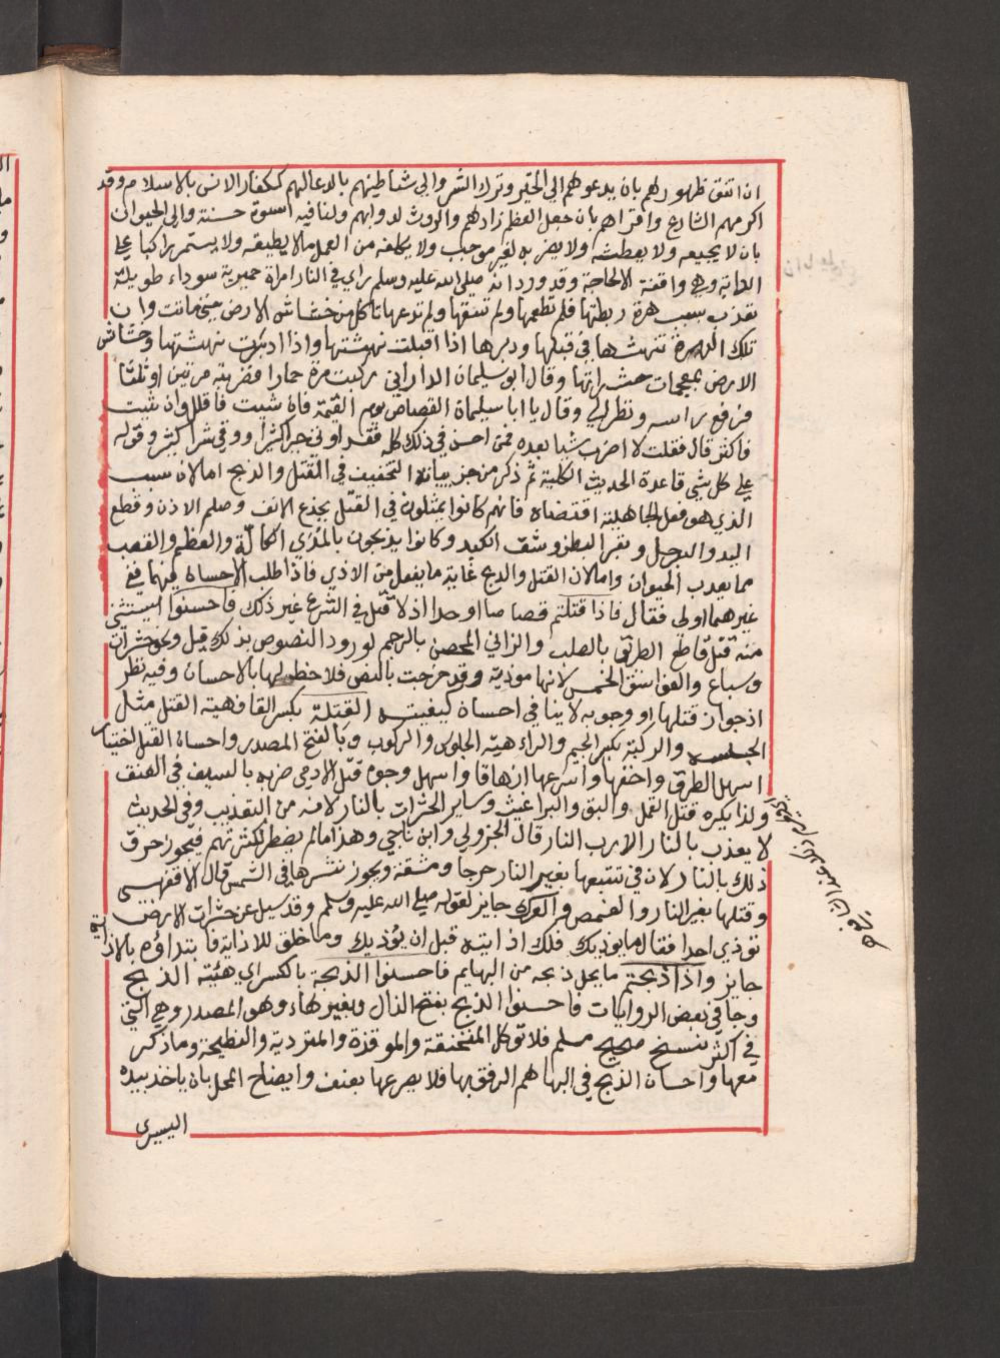 ان اتفق ظهورهم بان يدعوهم الى الخير وترك الشر والى شياطينهم بالدعا لهم ككفار الانس بالاسلام وقد
اكرمهم الشارع واقراهم بان جعل العظم زادهم والروث لدوابهم ولنا فيه اسوة حسنة والى الحيوان
بان لا يجيعه ولا يعطشه ولا يضربه لغير موجب ولا يكلفه من العمل ما لا يطيقه ولا يستمر راكبا على
الدابة وهي واقفة الا لحاجة وقد ورد انه صلى الله عليه وسلم راى في النار امراة حميرية سوداء طويلة
تعذب بسبب هرة ربطتها فلم تطعمها ولم تسقها ولم تدعها تاكل من خشاش الارض حتى ماتت وان
تلك الهرة تنهشها في قبلها ودبرها اذا اقبلت نهشتها واذا ادبرت نهشتها وخشاش
الارض بمعجمات حشراتها وقال ابو سليمان الداراني ركبت مرة حمارا فضربته مرتين او ثلثا
فرفع راسه ونظر الي وقال يا ابا سليمان القصاص يوم القيمة فان شيت فاقلل وان شيت
فاكثر قال فقلت لا اضرب شيا بعده فمن احسن في ذلك كله فقد اوتي خيرا كثيرا ووقي شرا كثيرا وقوله
على كل شي قاعدة الحديث الكلية ثم ذكر من جزيياته التخفيف في القتل والذبح اما لان سبب
الذي هو فعل الجاهلية اقتضاه فانهم كانوا يمثلون في القتل بجذع الانف وصلم الاذن وقطع
اليد والرجل وبقر البطن وشق الكبد وكانوا يذبحون بالمدي الكالة والعظم والقصب
مما يعذب الحيوان واما لان القتل والذبح غاية ما يفعل من الاذي فاذا طلب الاحسان فيهما ففي
غيرهما اولى فقال فاذا قتلتم قصاصا او حدا اذ لا قتل في الشرع غير ذلك فاحسنوا استثنى
منه قتل قاطع الطريق بالصلب والزاني المحصن بالرجم لورود النصوص بذلك قيل ونحو حشرات
وسباع والفواسق الخمس لانها موذية وقد خرجت بالنص فلا حظ لها بالاحسان وفيه نظر
اذ جواز قتلها او وجوبه لا ينافي احسان كيفيته القتلة بكسر القاف هيئة القتل مثل
الجلسة والركبة بكسر الجيم والراء هيئة الجلوس والركوب وبالفتح المصدر واحسان القتل اختيار
اسهل الطرق واخفها واسرعها ازهاقا واسهل وجوه قتل الادمي ضربه بالسيف في العنق
ولذا يكره قتل القمل والبق والبراغيث وساير الحشرات بالنار لانه من التعذيب وفي الحديث
لا يعذب بالنار الا رب النار قال الجزولي وابن ناجي وهذا ما لم يضطر لكثرتهم فيجوز حرق
ذلك بالنار لان في تتبعها بغير النار حرجا ومشقة ويجوز نشرها في الشمس قال الاقفهسي
وقتلها بغير النار والفعص والعرك جايز لقوله صلى الله عليه وسلم وقد سيل عن حشرات الارض
توذي احدا فقال ما يوذيك فلك اذايته قبل ان يوذيك وما خلق للاذاية فابتداؤه بالاذاية
جايز واذا ذبحتم ما يحل ذبحه من البهايم فاحسنوا الذبحة بالكسر اي هيئة الذبح
وجا في بعض الروايات فاحسنوا الذبح بفتح الذال وبغير هاء وهو المصدر وهي التي
في اكثر نسخ صحيح مسلم فلا توكل المنخنقة والموقوذة والمتردية والنطيحة وما ذكر
معها واحسان الذبح في البهايم الرفق بها فلا يصرعها بعنف وايضاح المحل بان ياخذ بيده
اليسرى